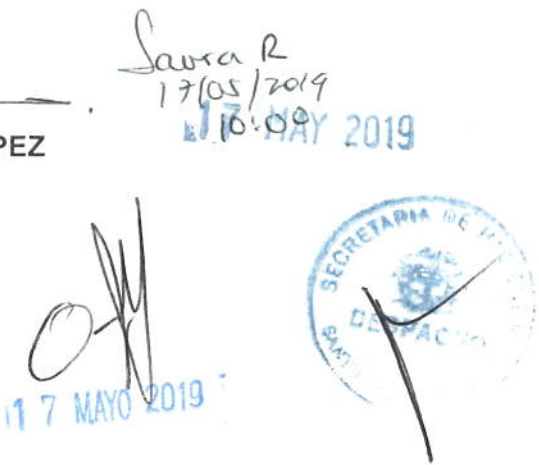 Laura R
17/05/2019
10:00
17 MAY 2019
PEZ
SECRETARIA DE
DESPACHO
17 MAYO 2019